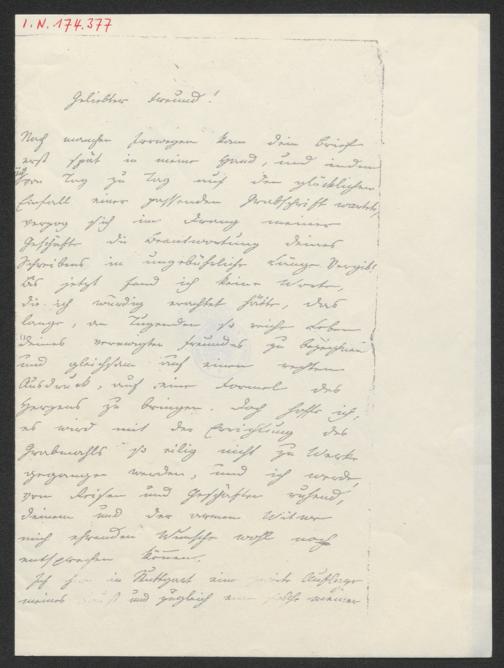 I.N. 174.377
Geliebter Freund!
Nach manchen Irrwegen kam dein Brief
erst spät in meine Hand, und indem
von Tag zu Tag auf den glücklichen
Einfall einer passenden Grabschrift wartete,
verzog sich im Drang meiner
Geschäfte die Beantwortung deines
Schreibens in ungebührliche Länge. Vergib!
Bis jetzt fand ich keine Worte,
die ich würdig erachtet hätte, das
lange, an Tugenden so reiche Leben
deines verewigten Freundes zu bezeichnen
und gleichsam auf einen rechten
Ausdruck, auf eine Formel des
Herzens zu bringen. Doch hoffe ich,
es wird mit der Errichtung des
Grabmahls so eilig nicht zu Werke
gegangen werden, und ich werde,
von Reisen und Geschäften ruhend,
deinem und der armen Witwe
mich ehrenden Wunsche wohl noch
entsprechen können.
Ich in Stuttgart eine zweite Auflage
meines Faust und zugleich eine solche meiner